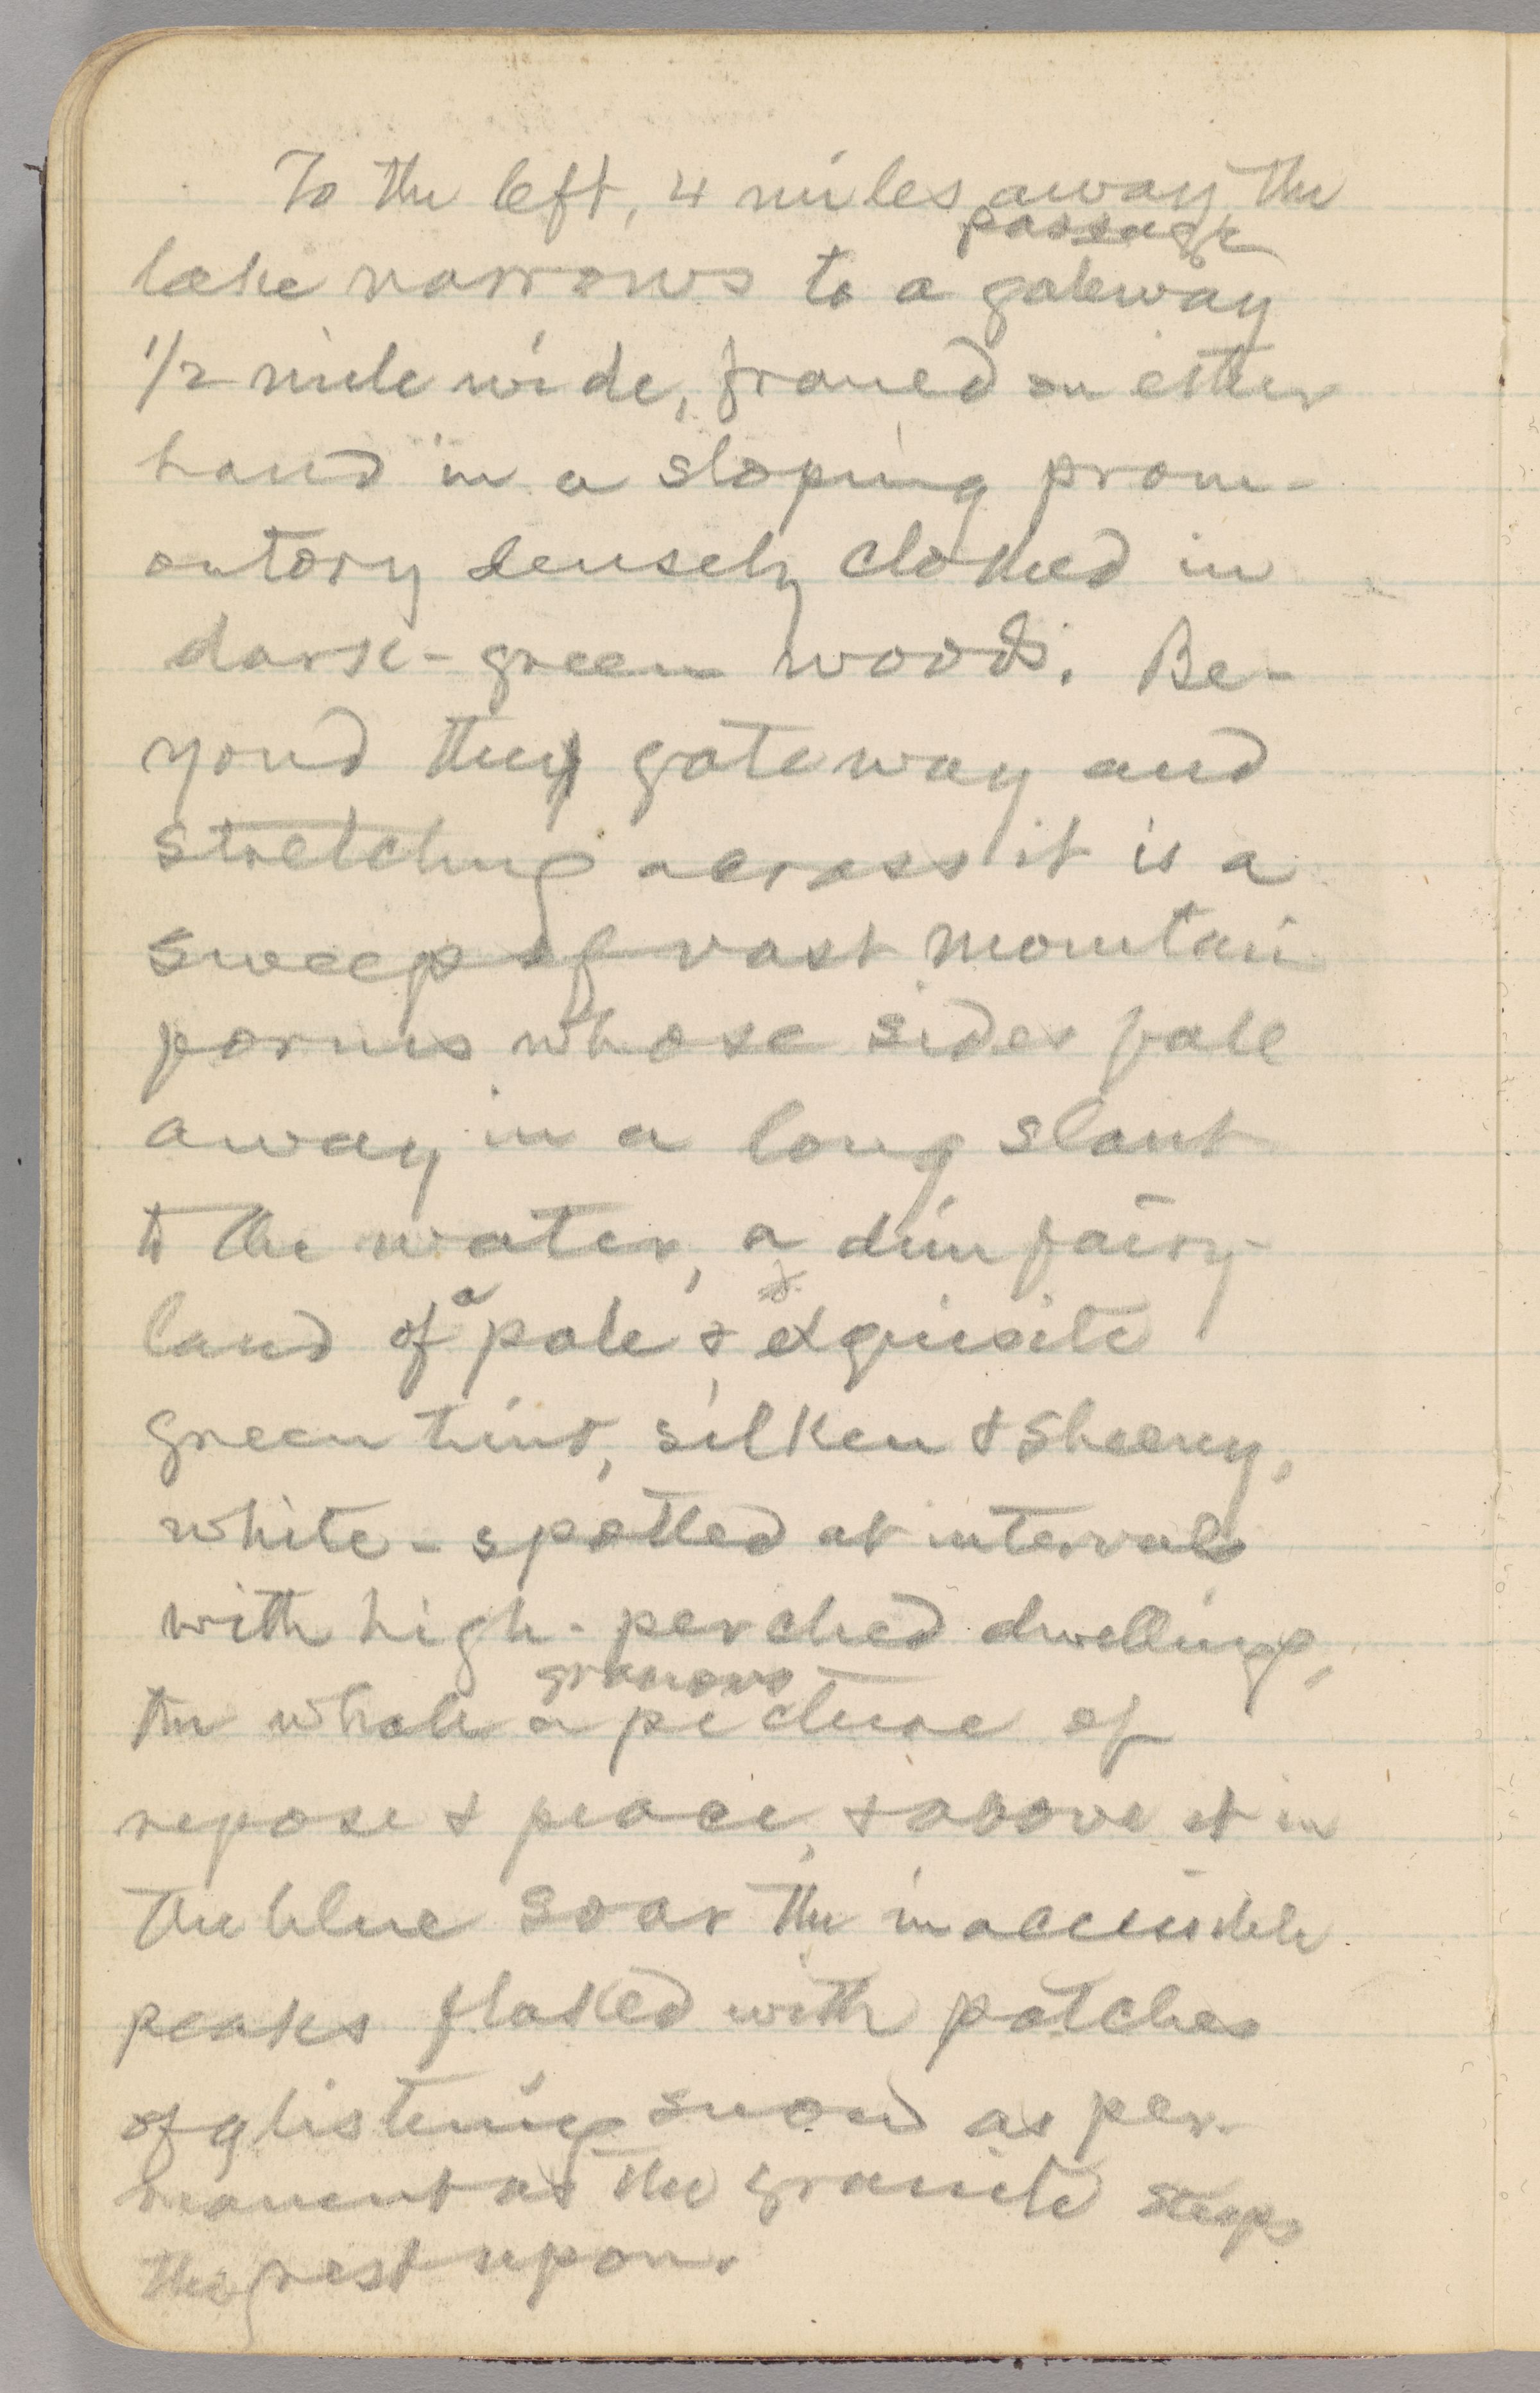 To the left, 4 miles away the
passage
lake narrows to a gateway
1/2 mile wide, framed on either
hand in a sloping prom-
ontory densely clothed in
dark-green woods. Be-
yond the gateway and
stretching across it is a
sweep of vast mountain
forms whose sides fall
away in a long slant
to the water, a dim fairy-
land of a pale & exquisite
green tint, silken & sheeny,
white-spotted at intervals
with high-perched dwellings,
gracious
the whole a picture of
repose & peace, & above it in
the blue soar the inaccessible
peaks flaked with patches
of glistening snow as per-
manent as the granite steeps
they rest upon.